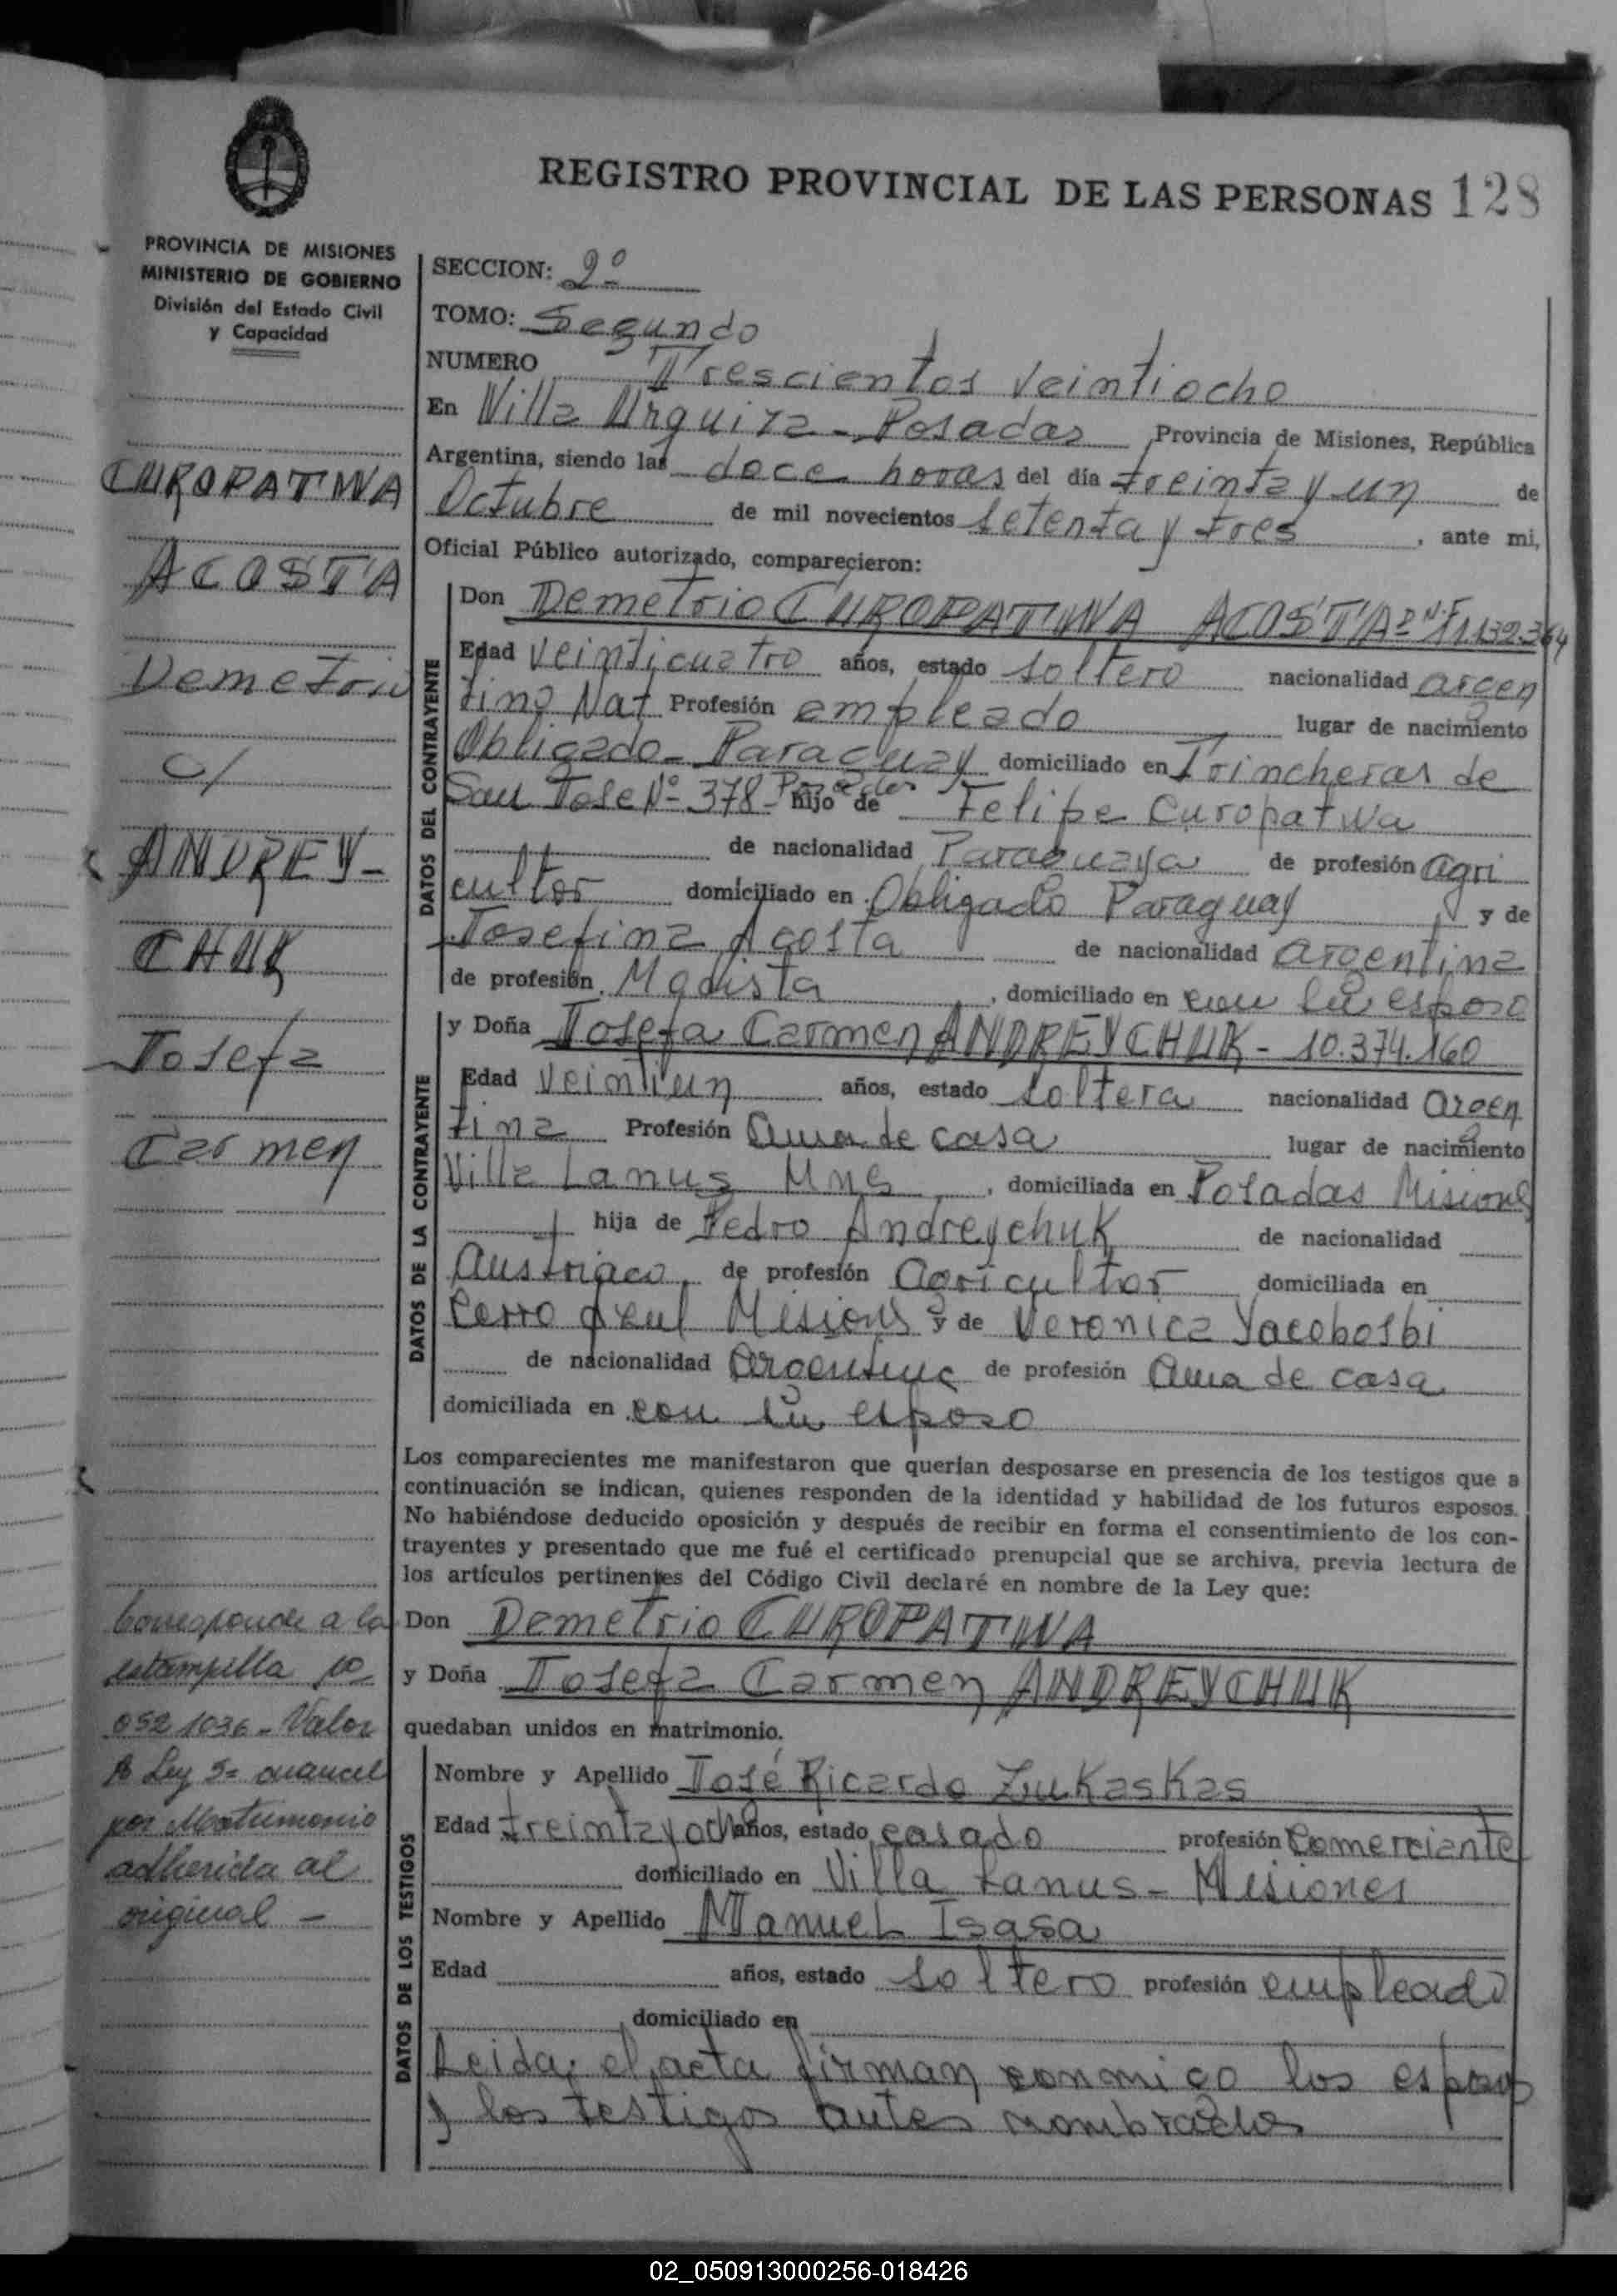 REGISTRO PROVINCIAL DE LAS PERSONAS 128
PROVINCIA DE MISIONES
MINISTERIO DE GOBIERNO
División del Estado Civil
y Capacidad
CUROPATWA
ACOSTA
Demetrio
c/
ANDREY-
CHUK
Josefa
Carmen
Corresponde a la
estampilla
0521036 - Valor
Ley 5=
por Matrimonio
adherida al
original -
SECCION: 2º
TOMO: Segundo
NUMERO Trescientos Veintiocho
En Villa Urquiza - Posadas Provincia de Misiones, República
Argentina, siendo las doce horas del día treinta y un de
Octubre de mil novecientos setenta y tres, ante mi,
Oficial Público autorizado, comparecieron:
DATOS DEL CONTRAYENTE
Don Demetrio CUROPATWA ACOSTA 11.132.364
Edad Veinticuatro años, estado soltero nacionalidad argen
tino Nat Profesión empleado lugar de nacimiento
Obligado - Paraguay domiciliado en Trincheras de
San Jose Nº 378 - Posadas hijo de Felipe Curopatwa
de nacionalidad Paraguaya de profesión agri
cultor domiciliado en Obligado Paraguay y de
Josefina Acosta de nacionalidad argentina
de profesión Modista, domiciliado en con su esposo
DATOS DE LA CONTRAYENTE
y Doña Josefa Carmen ANDREYCHUK - 10.374.160
Edad Veintiun años, estado soltera nacionalidad argen
tina Profesión ama de casa lugar de nacimiento
Villa Lanus Mnes, domiciliada en Posadas Misiones
hija de Pedro Andreychuk de nacionalidad
Austriaco, de profesión Agricultor domiciliada en
Cerro Azul Misions y de Veronica Yacobosbi
de nacionalidad Argentina de profesión ama de casa
domiciliada en con su esposo
Los comparecientes me manifestaron que querían desposarse en presencia de los testigos que a
continuación se indican, quienes responden de la identidad y habilidad de los futuros esposos.
No habiéndose deducido oposición y después de recibir en forma el consentimiento de los con-
trayentes y presentado que me fué el certificado prenupcial que se archiva, previa lectura de
los artículos pertinentes del Código Civil declaré en nombre de la Ley que:
Don Demetrio CUROPATWA
y Doña Josefa Carmen ANDREYCHUK
quedaban unidos en matrimonio.
DATOS DE LOS TESTIGOS
Nombre y Apellido José Ricardo Zukaskas
Edad treinta y ocho años, estado casado profesión Comerciante
domiciliado en Villa Lanus - Misiones
Nombre y Apellido Manuel Isasa
Edad años, estado soltero profesión empleado
domiciliado en
Leida, el acta firman conmigo los esposos
y los testigos antes nombrados
02_050913000256-018426